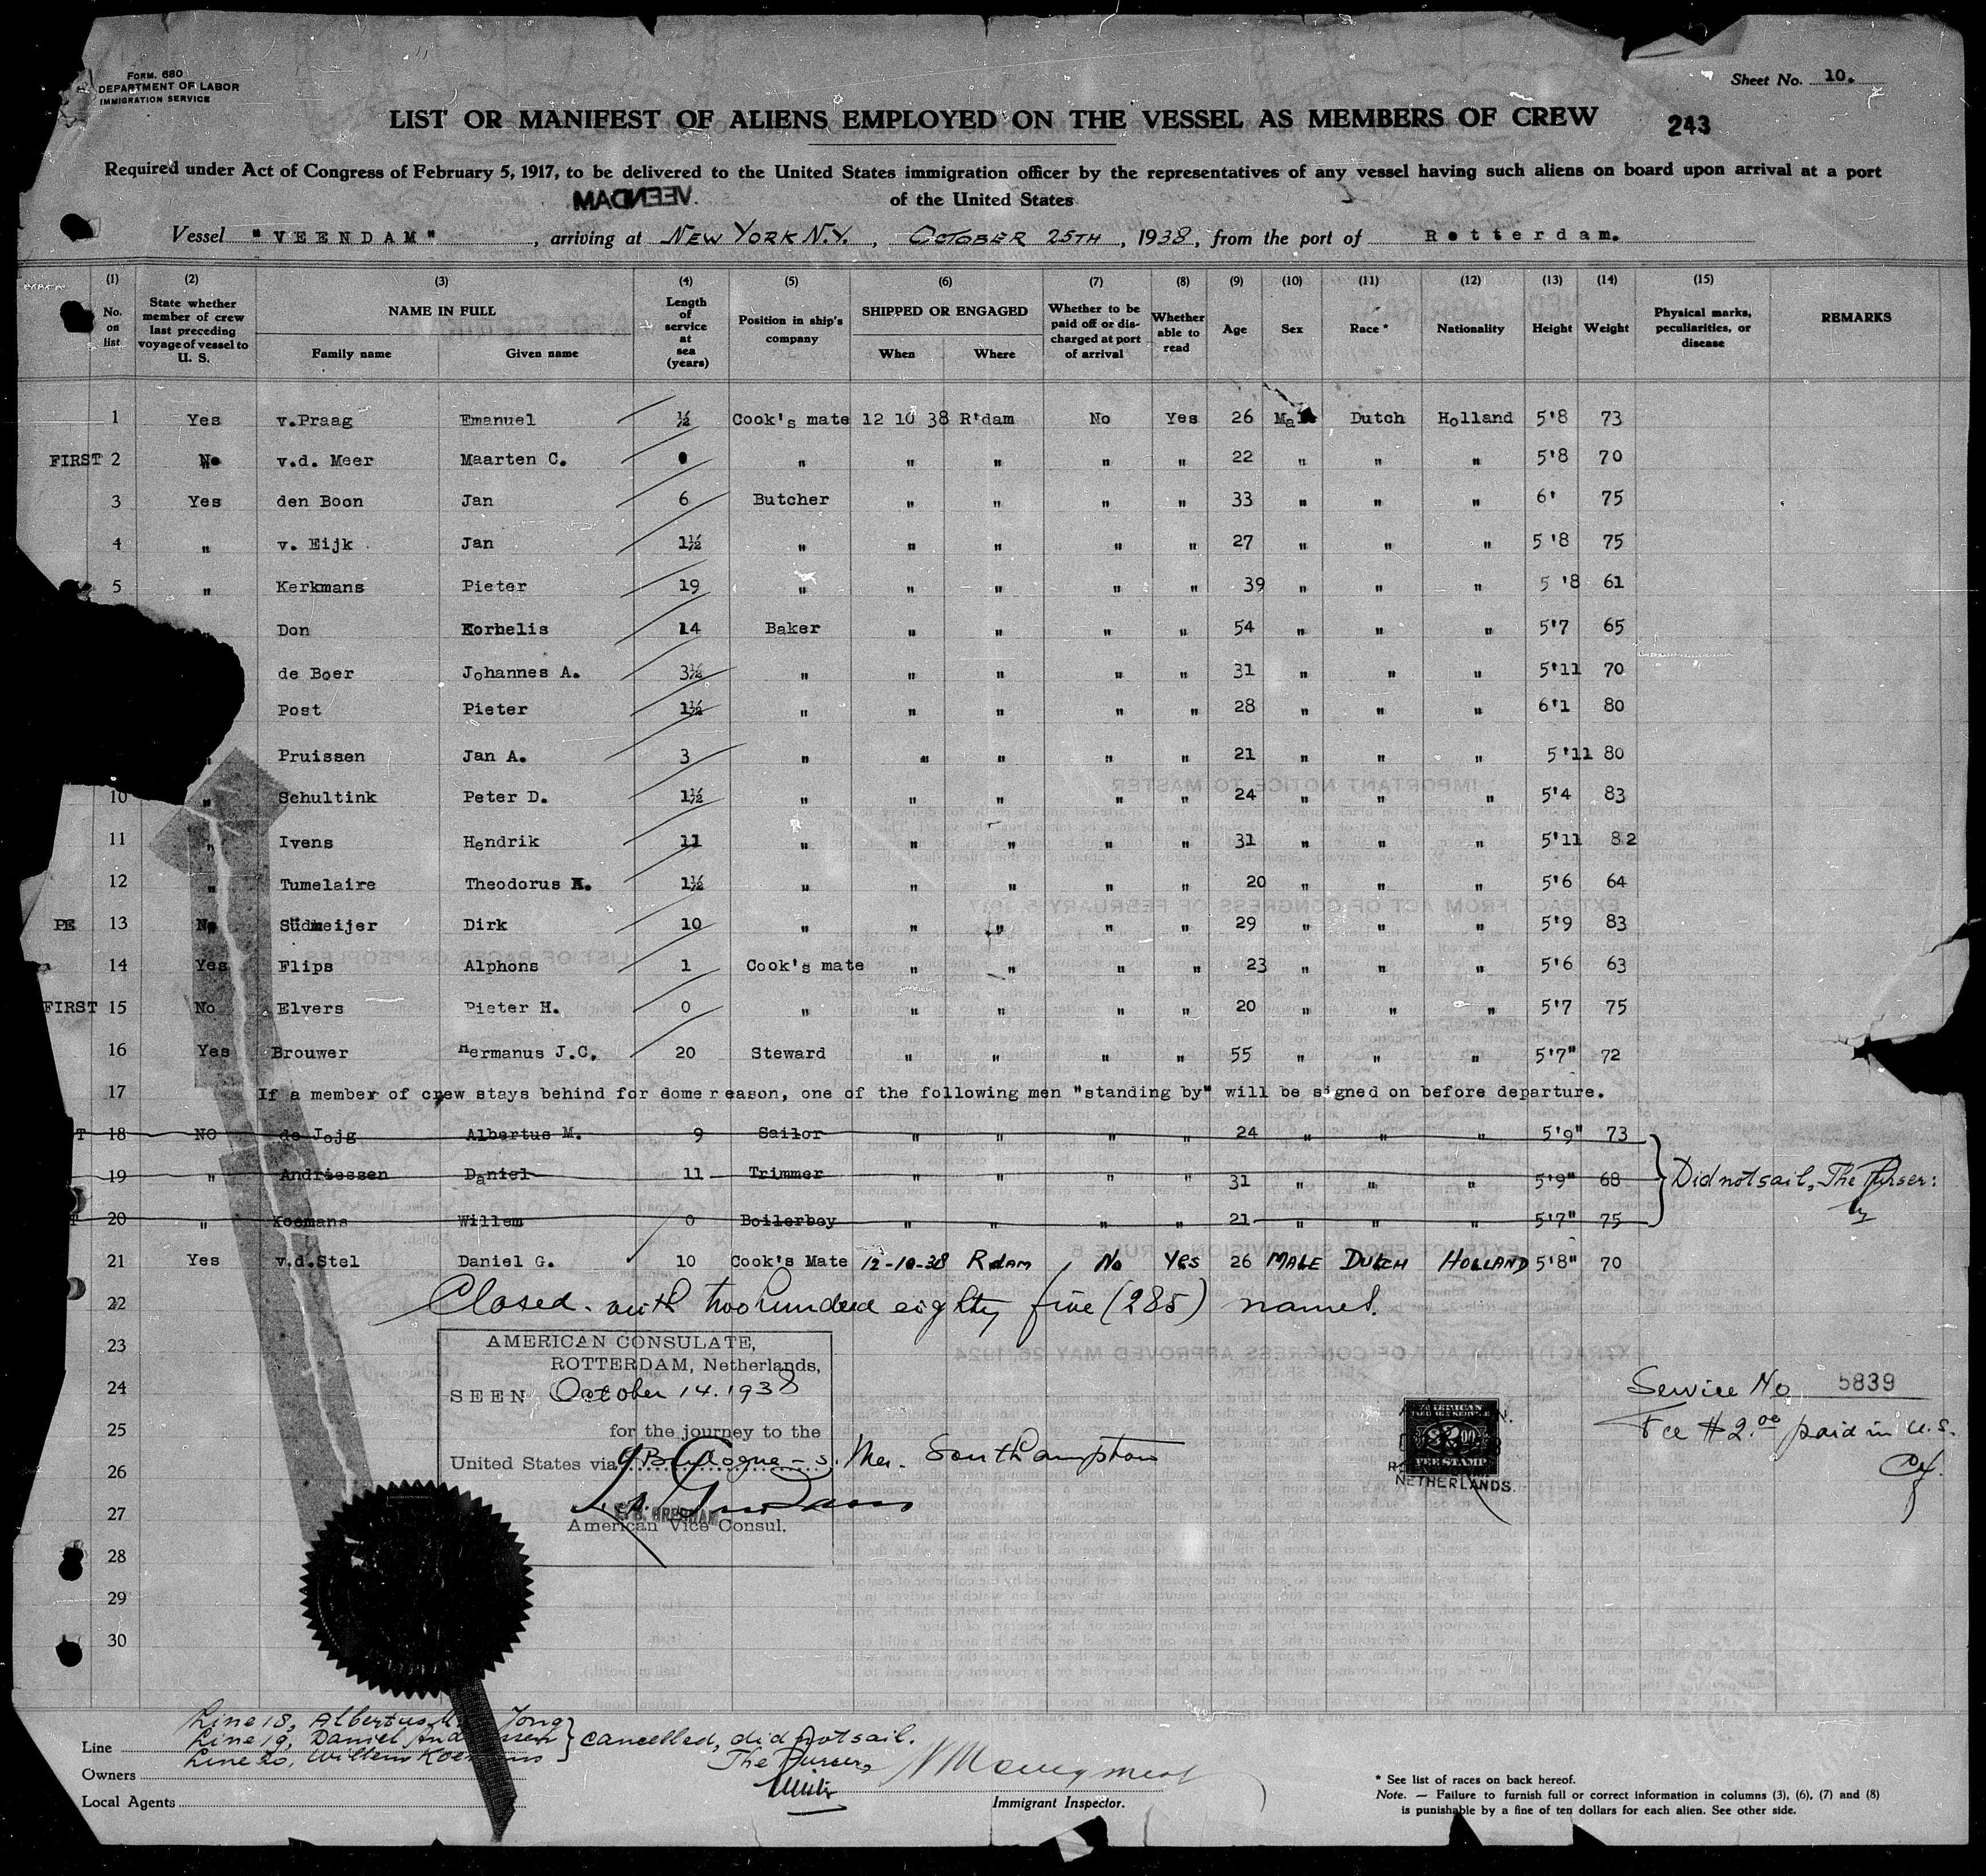 FORM. 680
DEPARTMENT OF LABOR
IMMIGRATION SERVICE
Sheet No. 10.
LIST OR MANIFEST OF ALIENS EMPLOYED ON THE VESSEL AS MEMBERS OF CREW
243
Required under Act of Congress of February 5, 1917, to be delivered to the United States immigration officer by the representatives of any vessel having such aliens on board upon arrival at a port
of the United States
VEENDAM.
Vessel "VEENDAM", arriving at NEW YORK N.Y., OCTOBER 25TH, 1938, from the port of Rotterdam.
(1) (2) (3) (4) (5) (6) (7) (8) (9) (10) (11) (12) (13) (14) (15)
No. on list
State whether member of crew last preceding voyage of vessel to U. S.
NAME IN FULL
Family name
Given name
Length of service at sea (years)
Position in ship's company
SHIPPED OR ENGAGED
When
Where
Whether to be paid off or discharged at port of arrival
Whether able to read
Age
Sex
Race *
Nationality
Height
Weight
Physical marks, peculiarities, or disease
REMARKS
1 Yes v.Praag Emanuel ½ Cook's mate 12 10 38 R'dam No Yes 26 Male Dutch Holland 5'8 73
FIRST 2 No v.d. Meer Maarten C. " " " " " 22 " " " 5'8 70
3 Yes den Boon Jan 6 Butcher " " " " 33 " " " 6' 75
4 " v. Eijk Jan 1½ " " " " " 27 " " " 5'8 75
5 " Kerkmans Pieter 19 " " " " " 39 " " " 5'8 61
Don Kornelis 14 Baker " " " " 54 " " " 5'7 65
de Boer Johannes A. 3½ " " " " " 31 " " " 5'11 70
Post Pieter 1½ " " " " " 28 " " " 6'1 80
" Pruissen Jan A. 3 " " " " " 21 " " " 5'11 80
10 " Schultink Peter D. 1½ " " " " " 24 " " " 5'4 83
11 " Ivens Hendrik 11 " " " " " 31 " " " 5'11 82
12 " Tumelaire Theodorus 1½ " " " " " 20 " " " 5'6 64
PE 13 No Südmeijer Dirk 10 " " " " " 29 " " " 5'9 83
14 Yes Flips Alphons 1 Cook's mate " " " " 23 " " " 5'6 63
FIRST 15 No Elvers Pieter H. 0 " " " " " 20 " " " 5'7 75
16 Yes Brouwer Hermanus J.C. 20 Steward " " " " 55 " " " 5'7" 72
17 If a member of crew stays behind for dome reason, one of the following men "standing by" will be signed on before departure.
T 18 NO de Jojg Albertus M. 9 Sailor " " " " 24 " " " 5'9" 73
19 " Andriessen Daniel 11 Trimmer " " " " 31 " " " 5'9" 68 Did not sail, The Purser:
T 20 " Koemans Willem 0 Boilerboy " " " " 21 " " " 5'7" 75
21 Yes v.d.Stel Daniel G. 10 Cook's Mate 12-10-38 Rdam No Yes 26 MALE DUTCH HOLLAND 5'8" 70
22 Closed with two hundred eighty five (285) names.
23 AMERICAN CONSULATE,
ROTTERDAM, Netherlands,
24 SEEN October 14. 1938
Service No 5839
25 for the journey to the
Fee $2.00 paid in U.S.
AMERICAN FOREIGN SERVICE $2.00 FEE STAMP
NETHERLANDS.
26 United States via Boulogne-s. Mer. Southampton
27 American Vice Consul.
28
29
30
Line 18, Albertus M. Jong
Line 19, Daniel And ssen cancelled, did not sail.
Line 20, Willem Koemans The Purser,
Line
Owners
Local Agents
Immigrant Inspector.
* See list of races on back hereof.
Note. — Failure to furnish full or correct information in columns (3), (6), (7) and (8)
is punishable by a fine of ten dollars for each alien. See other side.